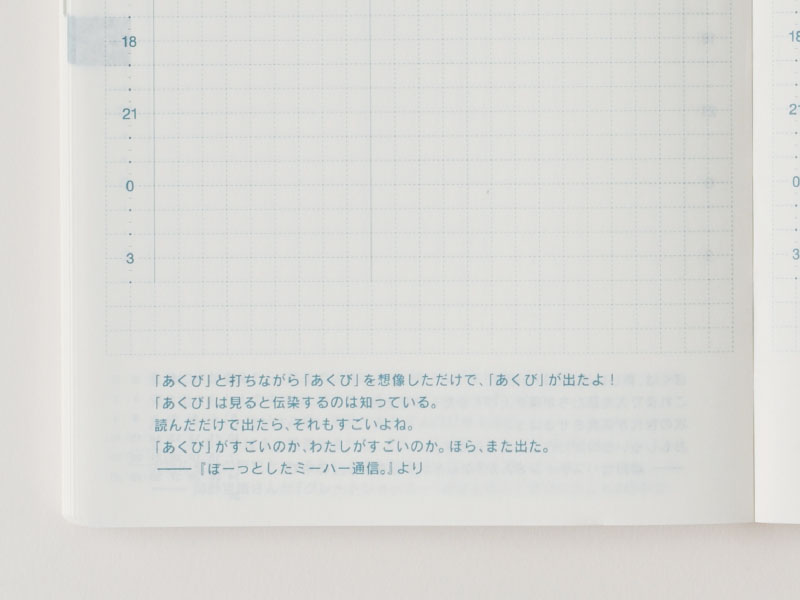 18
21
0
3
18
21
0
3
「あくび」と打ちながら「あくび」を想像しただけで、「あくび」が出たよ！
「あくび」は見ると伝染するのは知っている。
読んだだけで出たら、それもすごいよね。
「あくび」がすごいのか、わたしがすごいのか。ほら、また出た。
――『ぼーっとしたミーハー通信。』より